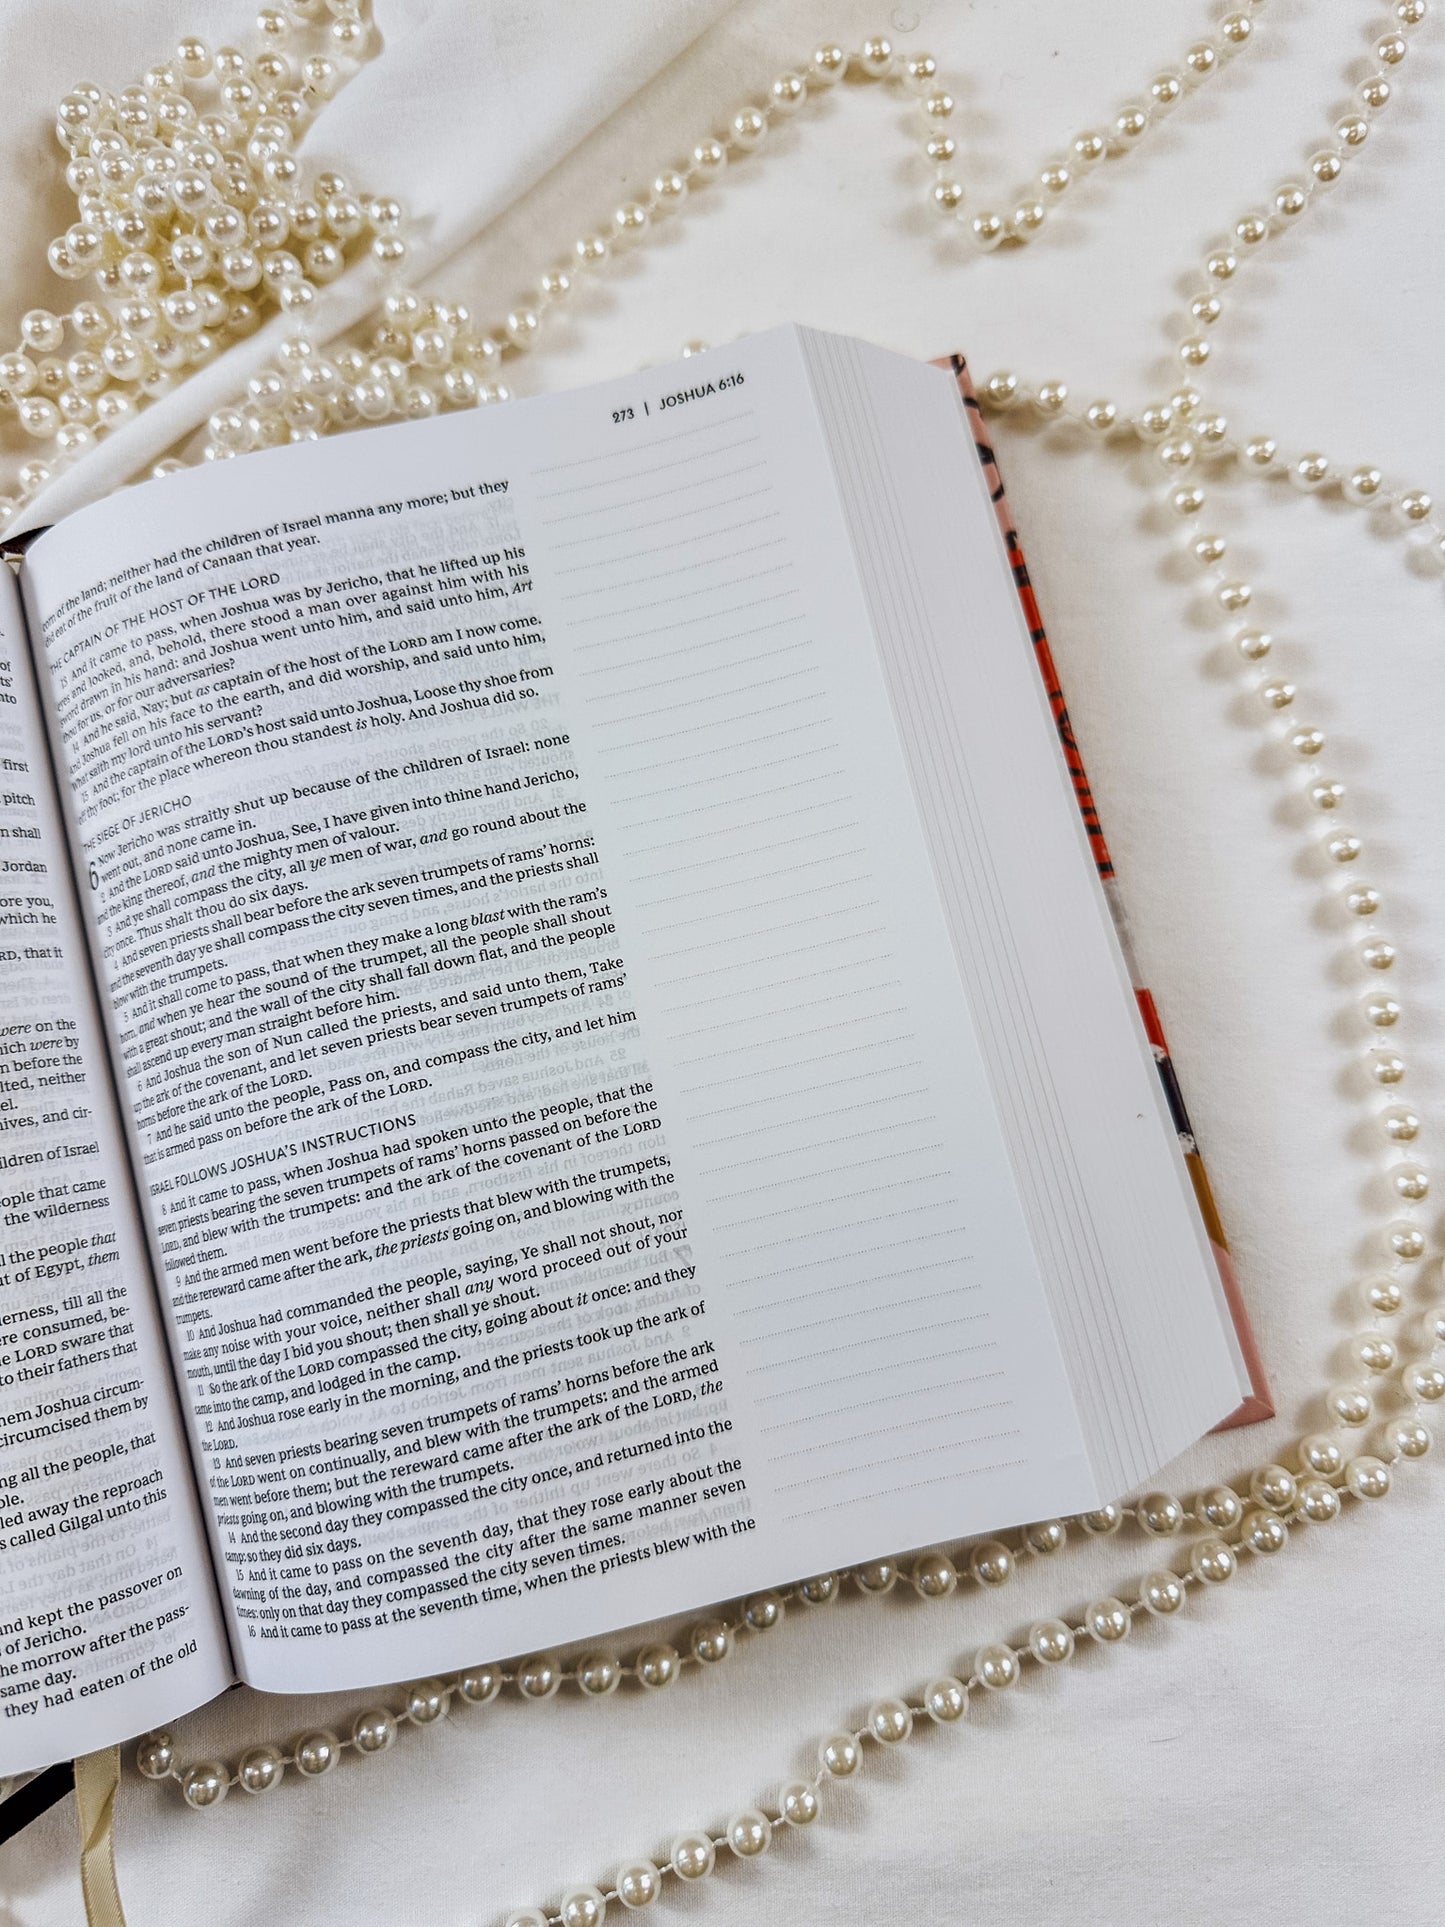 of
ts'
nto
first
pitch
n shall
Jordan
ore you,
which he
RD, that it
were on the
hich were by
n before the
lted, neither
el.
nives, and cir-
ildren of Israel
ople that came
the wilderness
ll the people that
ut of Egypt, them
derness, till all the
ere consumed, be-
e LORD sware that
to their fathers that
hem Joshua circum-
circumcised them by
ng all the people, that
ple.
led away the reproach
s called Gilgal unto this
and kept the passover on
s of Jericho.
he morrow after the pass-
same day.
they had eaten of the old
273 | JOSHUA 6:16
corn of the land; neither had the children of Israel manna any more; but they
did eat of the fruit of the land of Canaan that year.
THE CAPTAIN OF THE HOST OF THE LORD
13 And it came to pass, when Joshua was by Jericho, that he lifted up his
eyes and looked, and, behold, there stood a man over against him with his
sword drawn in his hand: and Joshua went unto him, and said unto him, Art
thou for us, or for our adversaries?
14 And he said, Nay; but as captain of the host of the LORD am I now come.
And Joshua fell on his face to the earth, and did worship, and said unto him,
What saith my lord unto his servant?
15 And the captain of the LORD's host said unto Joshua, Loose thy shoe from
off thy foot; for the place whereon thou standest is holy. And Joshua did so.
THE SIEGE OF JERICHO
6 Now Jericho was straitly shut up because of the children of Israel: none
went out, and none came in.
2 And the LORD said unto Joshua, See, I have given into thine hand Jericho,
and the king thereof, and the mighty men of valour.
3 And ye shall compass the city, all ye men of war, and go round about the
city once. Thus shalt thou do six days.
4 And seven priests shall bear before the ark seven trumpets of rams' horns:
and the seventh day ye shall compass the city seven times, and the priests shall
blow with the trumpets.
5 And it shall come to pass, that when they make a long blast with the ram's
horn, and when ye hear the sound of the trumpet, all the people shall shout
with a great shout; and the wall of the city shall fall down flat, and the people
shall ascend up every man straight before him.
6 And Joshua the son of Nun called the priests, and said unto them, Take
up the ark of the covenant, and let seven priests bear seven trumpets of rams'
horns before the ark of the LORD.
7 And he said unto the people, Pass on, and compass the city, and let him
that is armed pass on before the ark of the LORD.
ISRAEL FOLLOWS JOSHUA'S INSTRUCTIONS
8 And it came to pass, when Joshua had spoken unto the people, that the
seven priests bearing the seven trumpets of rams' horns passed on before the
LORD, and blew with the trumpets: and the ark of the covenant of the LORD
followed them.
9 And the armed men went before the priests that blew with the trumpets,
and the rereward came after the ark, the priests going on, and blowing with the
trumpets.
10 And Joshua had commanded the people, saying, Ye shall not shout, nor
make any noise with your voice, neither shall any word proceed out of your
mouth, until the day I bid you shout; then shall ye shout.
11 So the ark of the LORD compassed the city, going about it once: and they
came into the camp, and lodged in the camp.
12 And Joshua rose early in the morning, and the priests took up the ark of
the LORD.
13 And seven priests bearing seven trumpets of rams' horns before the ark
of the LORD went on continually, and blew with the trumpets: and the armed
men went before them; but the rereward came after the ark of the LORD, the
priests going on, and blowing with the trumpets.
14 And the second day they compassed the city once, and returned into the
camp: so they did six days.
15 And it came to pass on the seventh day, that they rose early about the
dawning of the day, and compassed the city after the same manner seven
times: only on that day they compassed the city seven times.
16 And it came to pass at the seventh time, when the priests blew with the